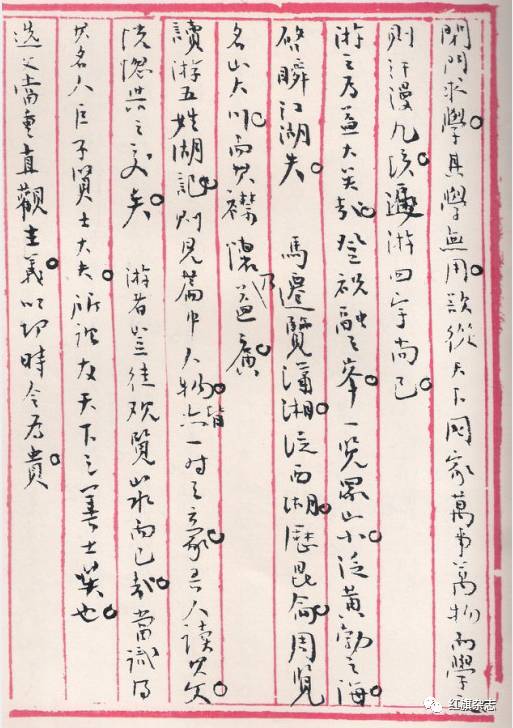 閉門求學。其學無用。欲從天下國家萬事萬物而學之
則汗漫九垓。遍游四宇尚已。
游之为益大矣哉。登祝融之峯。一览眾山小。泛黄勃之海。
啓瞬江湖失。 馬遷覽瀟湘。泛西湖。歷昆侖。周覽
名山大川。而其襟懷乃益廣。
讀游五姓湖記。則見篇中人物。亦皆一時之豪。吾人讀其文。
恍惚與之交矣。 游者豈徒观覽山水而已哉。當識得
其名人巨子賢士大夫。所謂友天下之善士是也。
选文當重直觀主義以切時令为貴。
红旗杂志